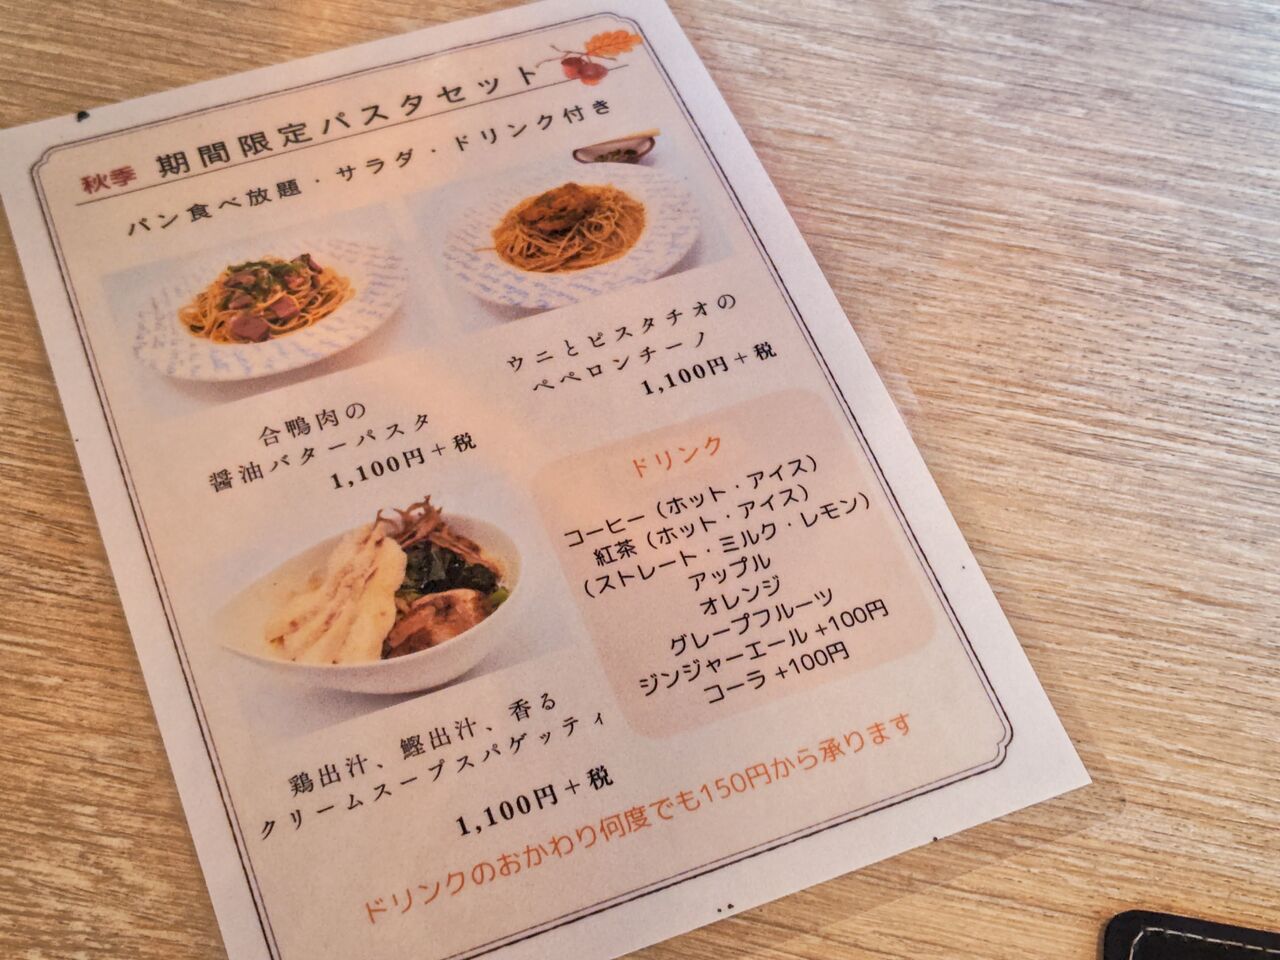 秋季 期間限定パスタセット
パン食べ放題・サラダ・ドリンク付き
合鴨肉の
醤油バターパスタ
1,100円＋税
ウニとピスタチオの
ペペロンチーノ
1,100円＋税
鶏出汁、鰹出汁、香る
クリームスープスパゲッティ
1,100円＋税
ドリンク
コーヒー（ホット・アイス）
紅茶（ホット・アイス）
（ストレート・ミルク・レモン）
アップル
オレンジ
グレープフルーツ
ジンジャーエール +100円
コーラ +100円
ドリンクのおかわり何度でも150円から承ります